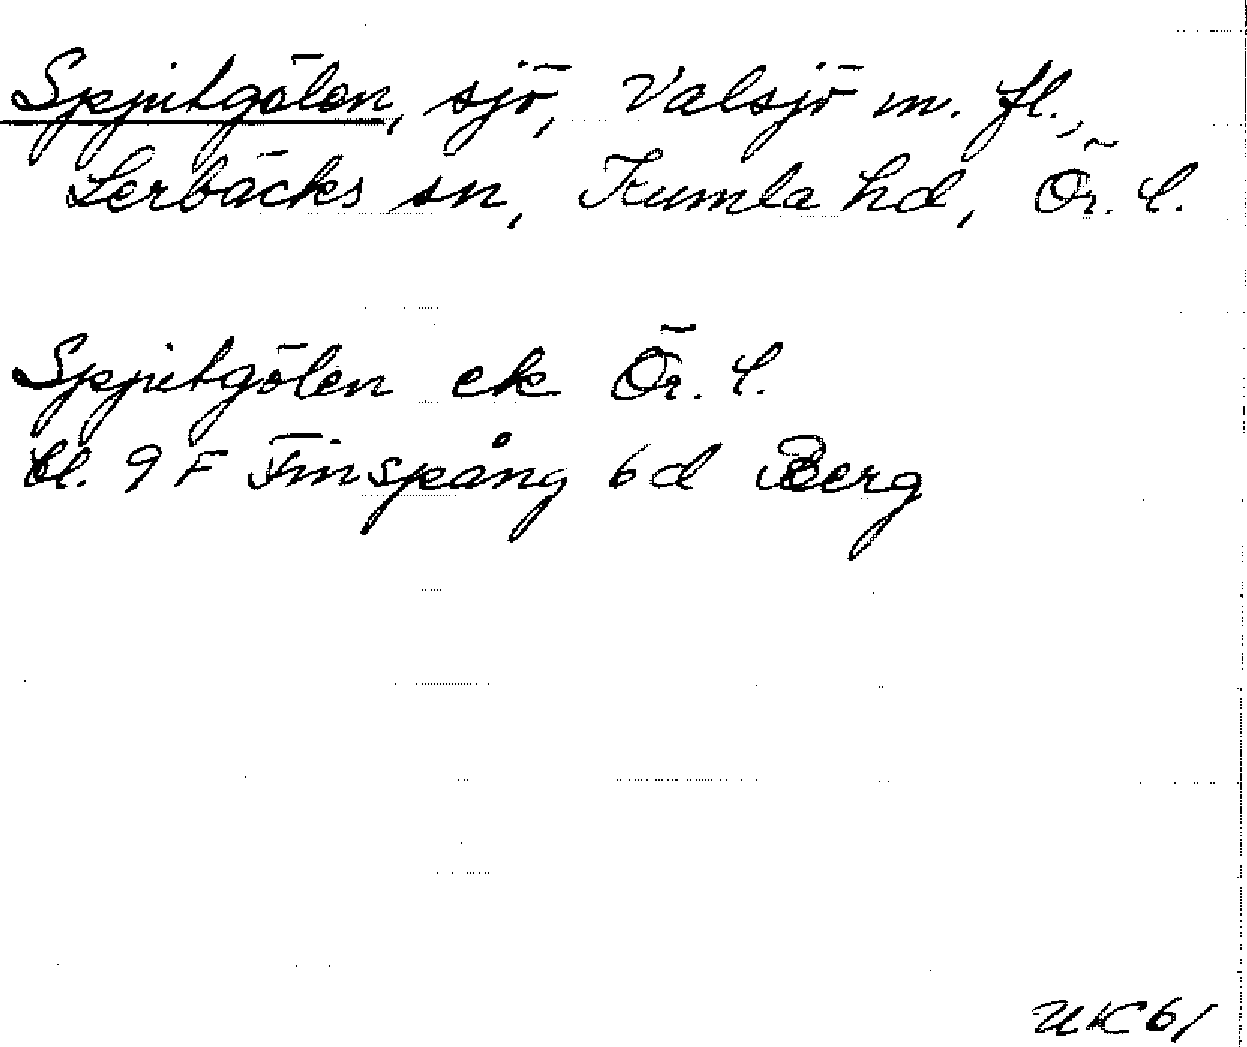 Spjutgölen, sjö, Valsjö m. fl.,
Lerbäcks sn, Kumla hd, Ör. l.
Spjutgölen ek Ör. l.
bl. 9 F Finspång 6 d Berg
UK 61